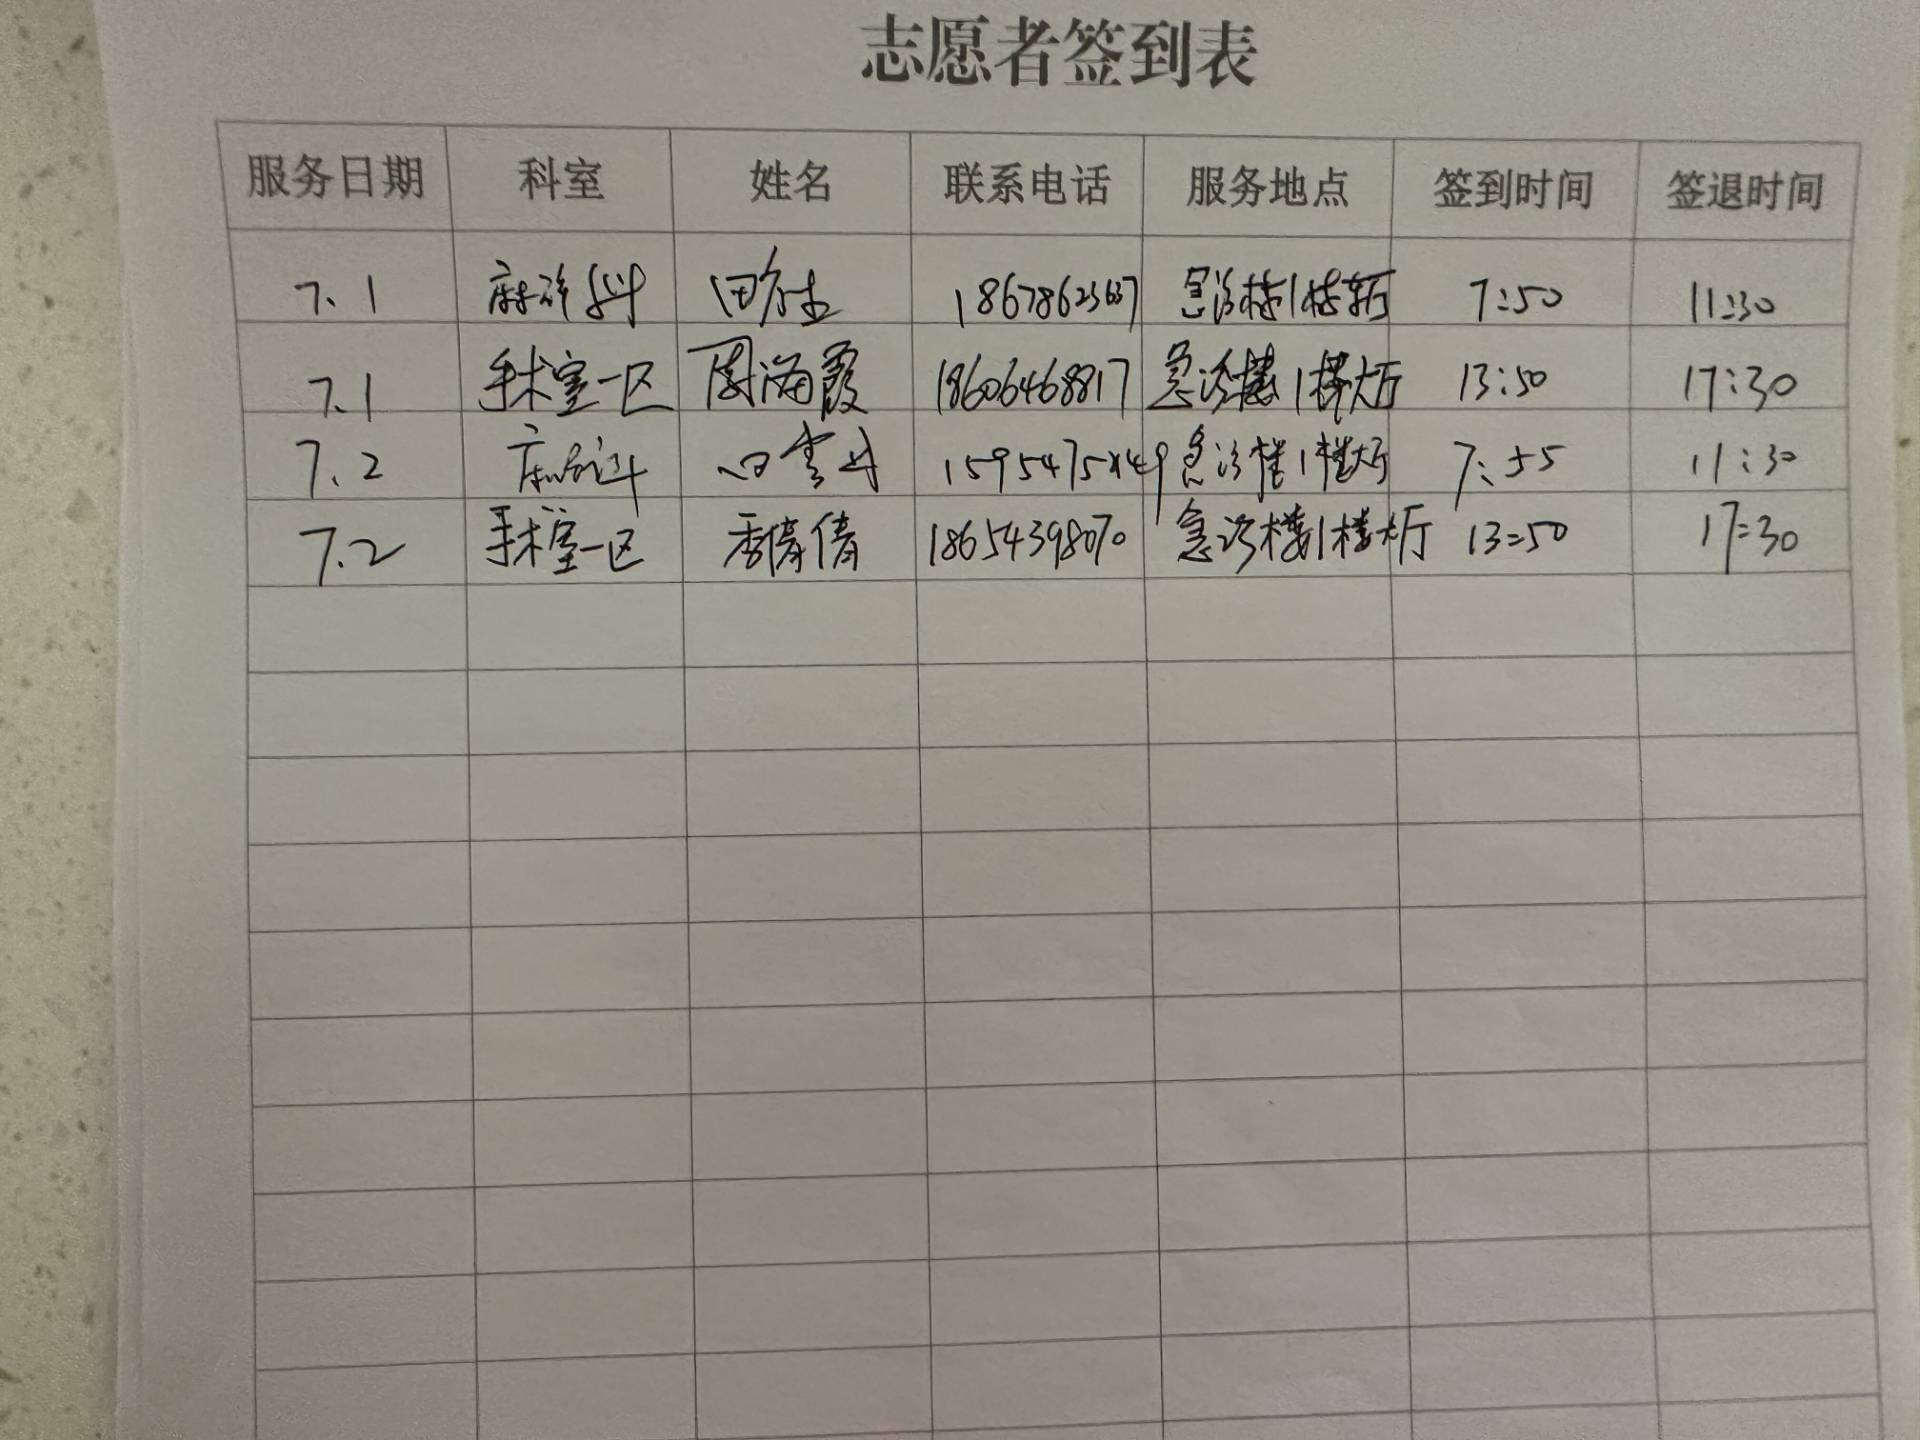 志愿者签到表
服务日期 科室 姓名 联系电话 服务地点 签到时间 签退时间
7.1 麻醉科 田 急诊楼1楼大厅 7:50 11:30
7.1 手术室一区 周海霞 18606468817 急诊楼1楼大厅 13:50 17:30
7.2 麻醉科 急诊楼1楼大厅 7:55 11:30
7.2 手术室一区 季倩倩 18654398070 急诊楼1楼大厅 13:50 17:30